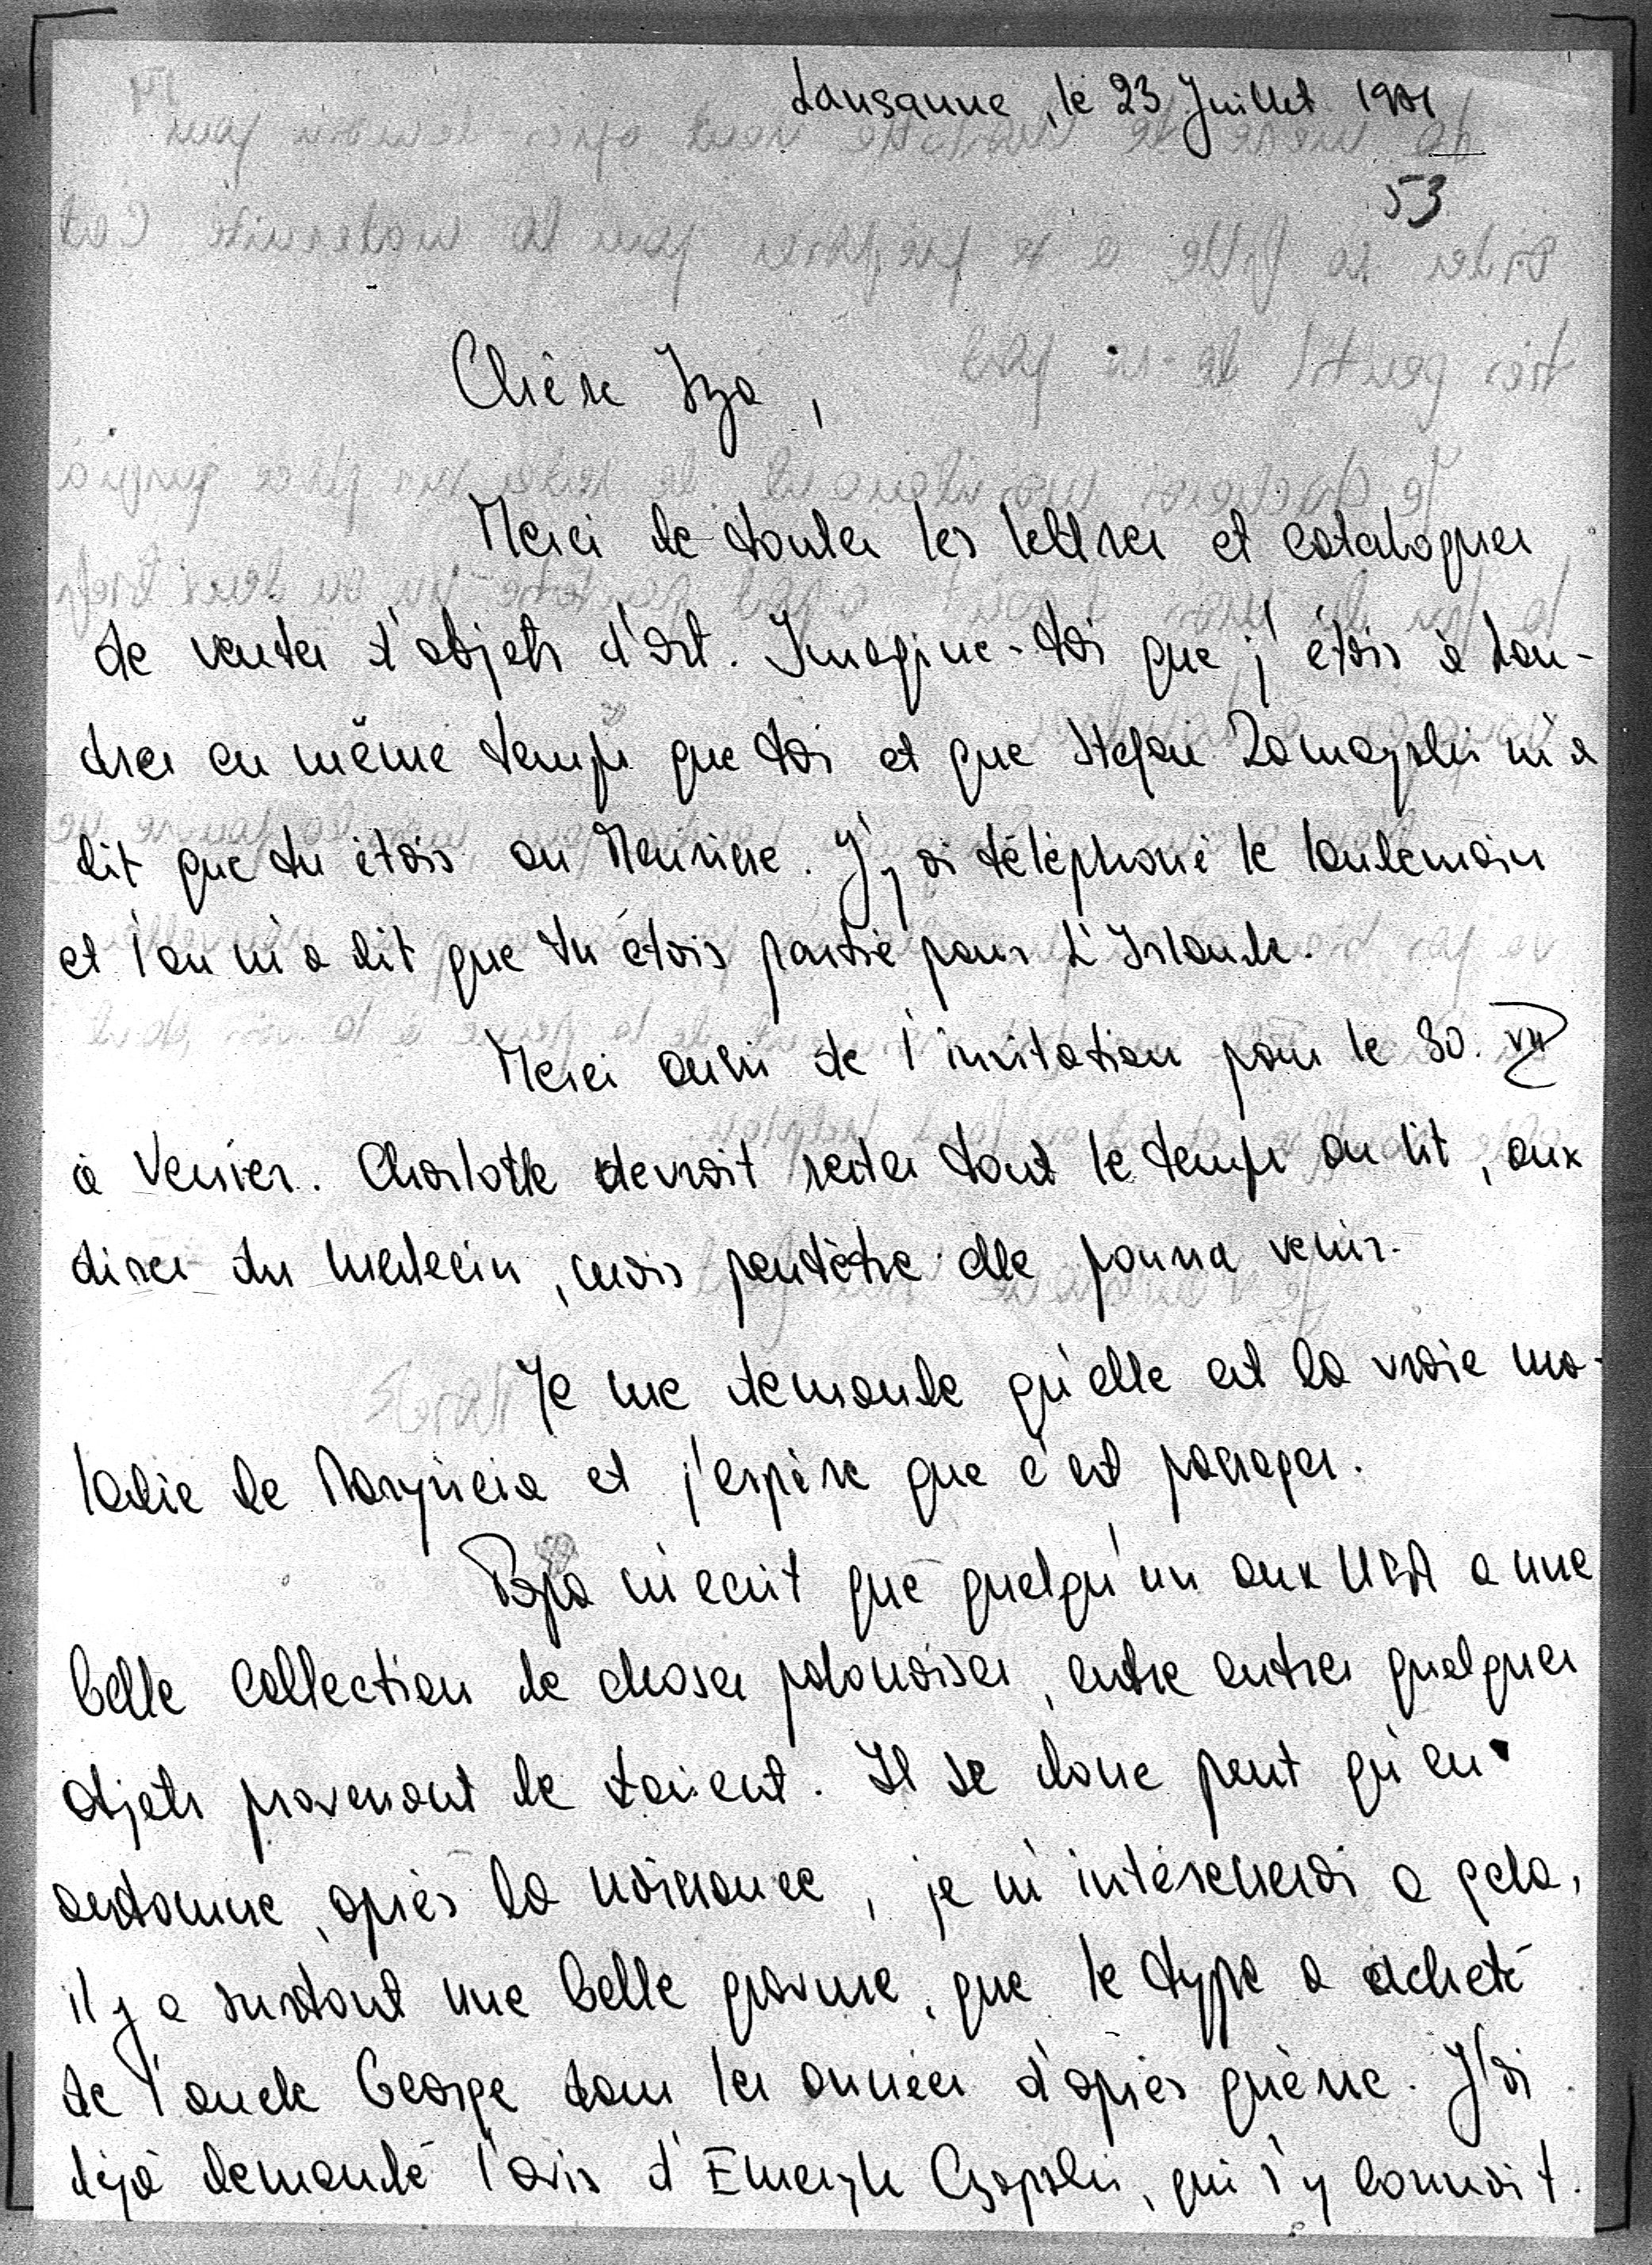 Lausanne, le 23 Juillet 1971
53
Chère Iza,
Merci de toutes les lettres et catalogues
de ventes d'objets d'art. Imagine-toi que j'étais à Lon-
dres en même temps que toi et que Stefan Zamoyski m'a
dit que tu étais au Meurice. J'y ai téléphoné le lendemain
et l'on m'a dit que tu étais partie pour L'Islande.
Merci aussi de l'invitation pour le 30. VII
à Verrier. Charlotte devrait rester tout le temps au lit, aux
dires du medecin, mais peutêtre elle pourra venir.
Je me demande qu'elle est la vraie ma-
ladie de Maryncia et j'espère que c'est passager.
Papa m'ecrit que quelqu'un aux USA a une
belle collection de choses polonaises, entre autres quelques
objets provenant de Łańcut. Il se donc peut qu'en
automne, après la naissance, je m'intéresserai a cela,
il y a surtout une belle gravure, que le type a acheté
de l'oncle George dans les années d'après guèrre. J'ai
déjà demandé l'avis d'Emeryk Czapski, qui s'y connait.